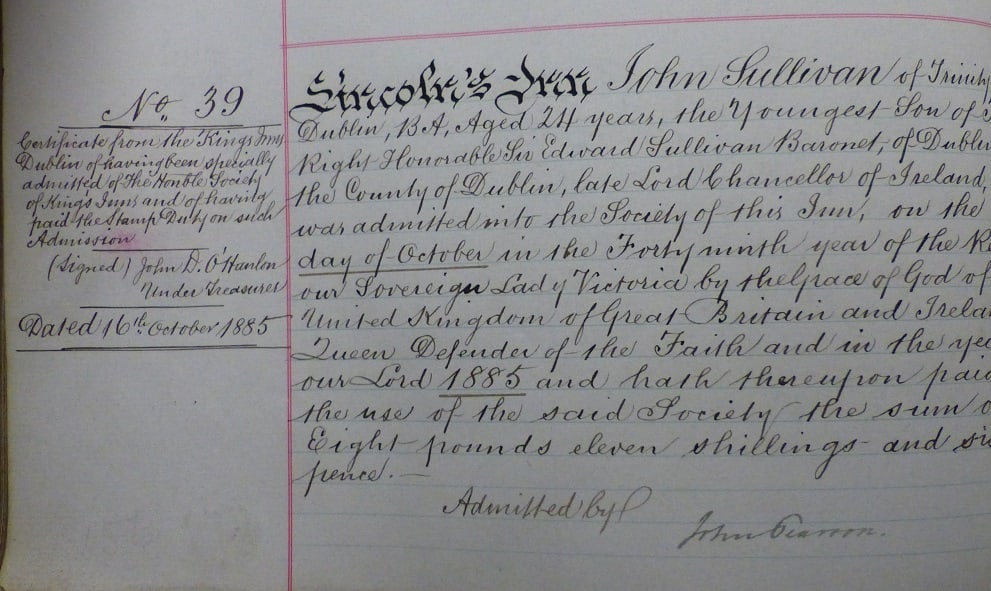 No. 39
Certificate from the Kings Inns
Dublin of having been specially
admitted of The Honble Society
of Kings Inns and of having
paid the Stamp Duty on such
Admission
(Signed) John D. O'Hanlon
Under Treasurer
Dated 16th October 1885
Lincoln's Inn John Sullivan of Trinity
Dublin, BA, Aged 24 years, the Youngest Son of
Right Honorable Sir Edward Sullivan Baronet, of Dublin
the County of Dublin, late Lord Chancellor of Ireland,
was admitted into the Society of this Inn, on the
day of October in the Forty ninth year of the
our Sovereign Lady Victoria by the Grace of God of
United Kingdom of Great Britain and
Queen Defender of the Faith and in the
our Lord 1885 and hath thereupon paid
the use of the said Society the sum
Eight pounds eleven shillings and
pence. —
Admitted by
John Pearson.